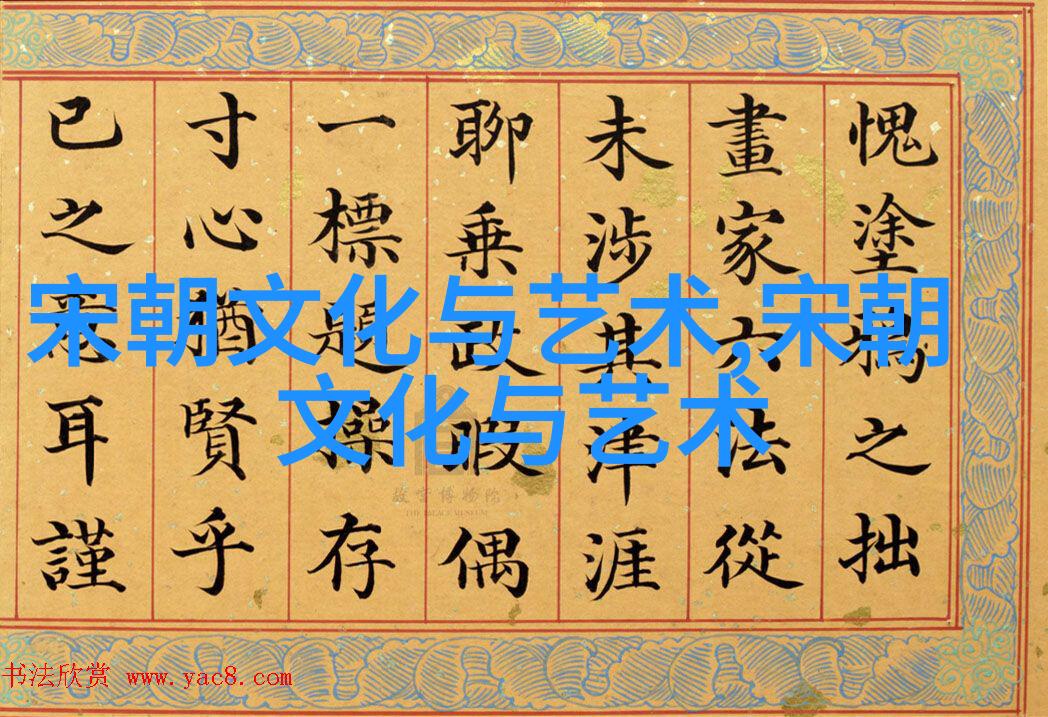 愧塗鴉之拙
畫家六法從
未涉其津涯
聊乘政暇偶
一標題操存
寸心猶賢乎
已之耳謹
宋朝文化与艺术,宋朝
文化与艺术
故宫博物院
THE PALACE MUSEUM
书法欣赏 www.yac8.com